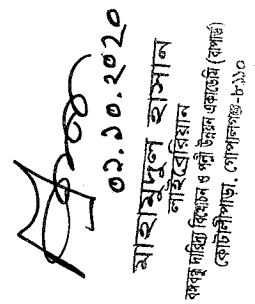 ০১.১০.২০২০
মাহামুদুল হাসান
লাইব্রেরিয়ান
বঙ্গবন্ধু দারিদ্র্য বিমোচন ও পল্লী উন্নয়ন একাডেমি (বাপার্ড)
কোটালীপাড়া, গোপালগঞ্জ-৮১১০